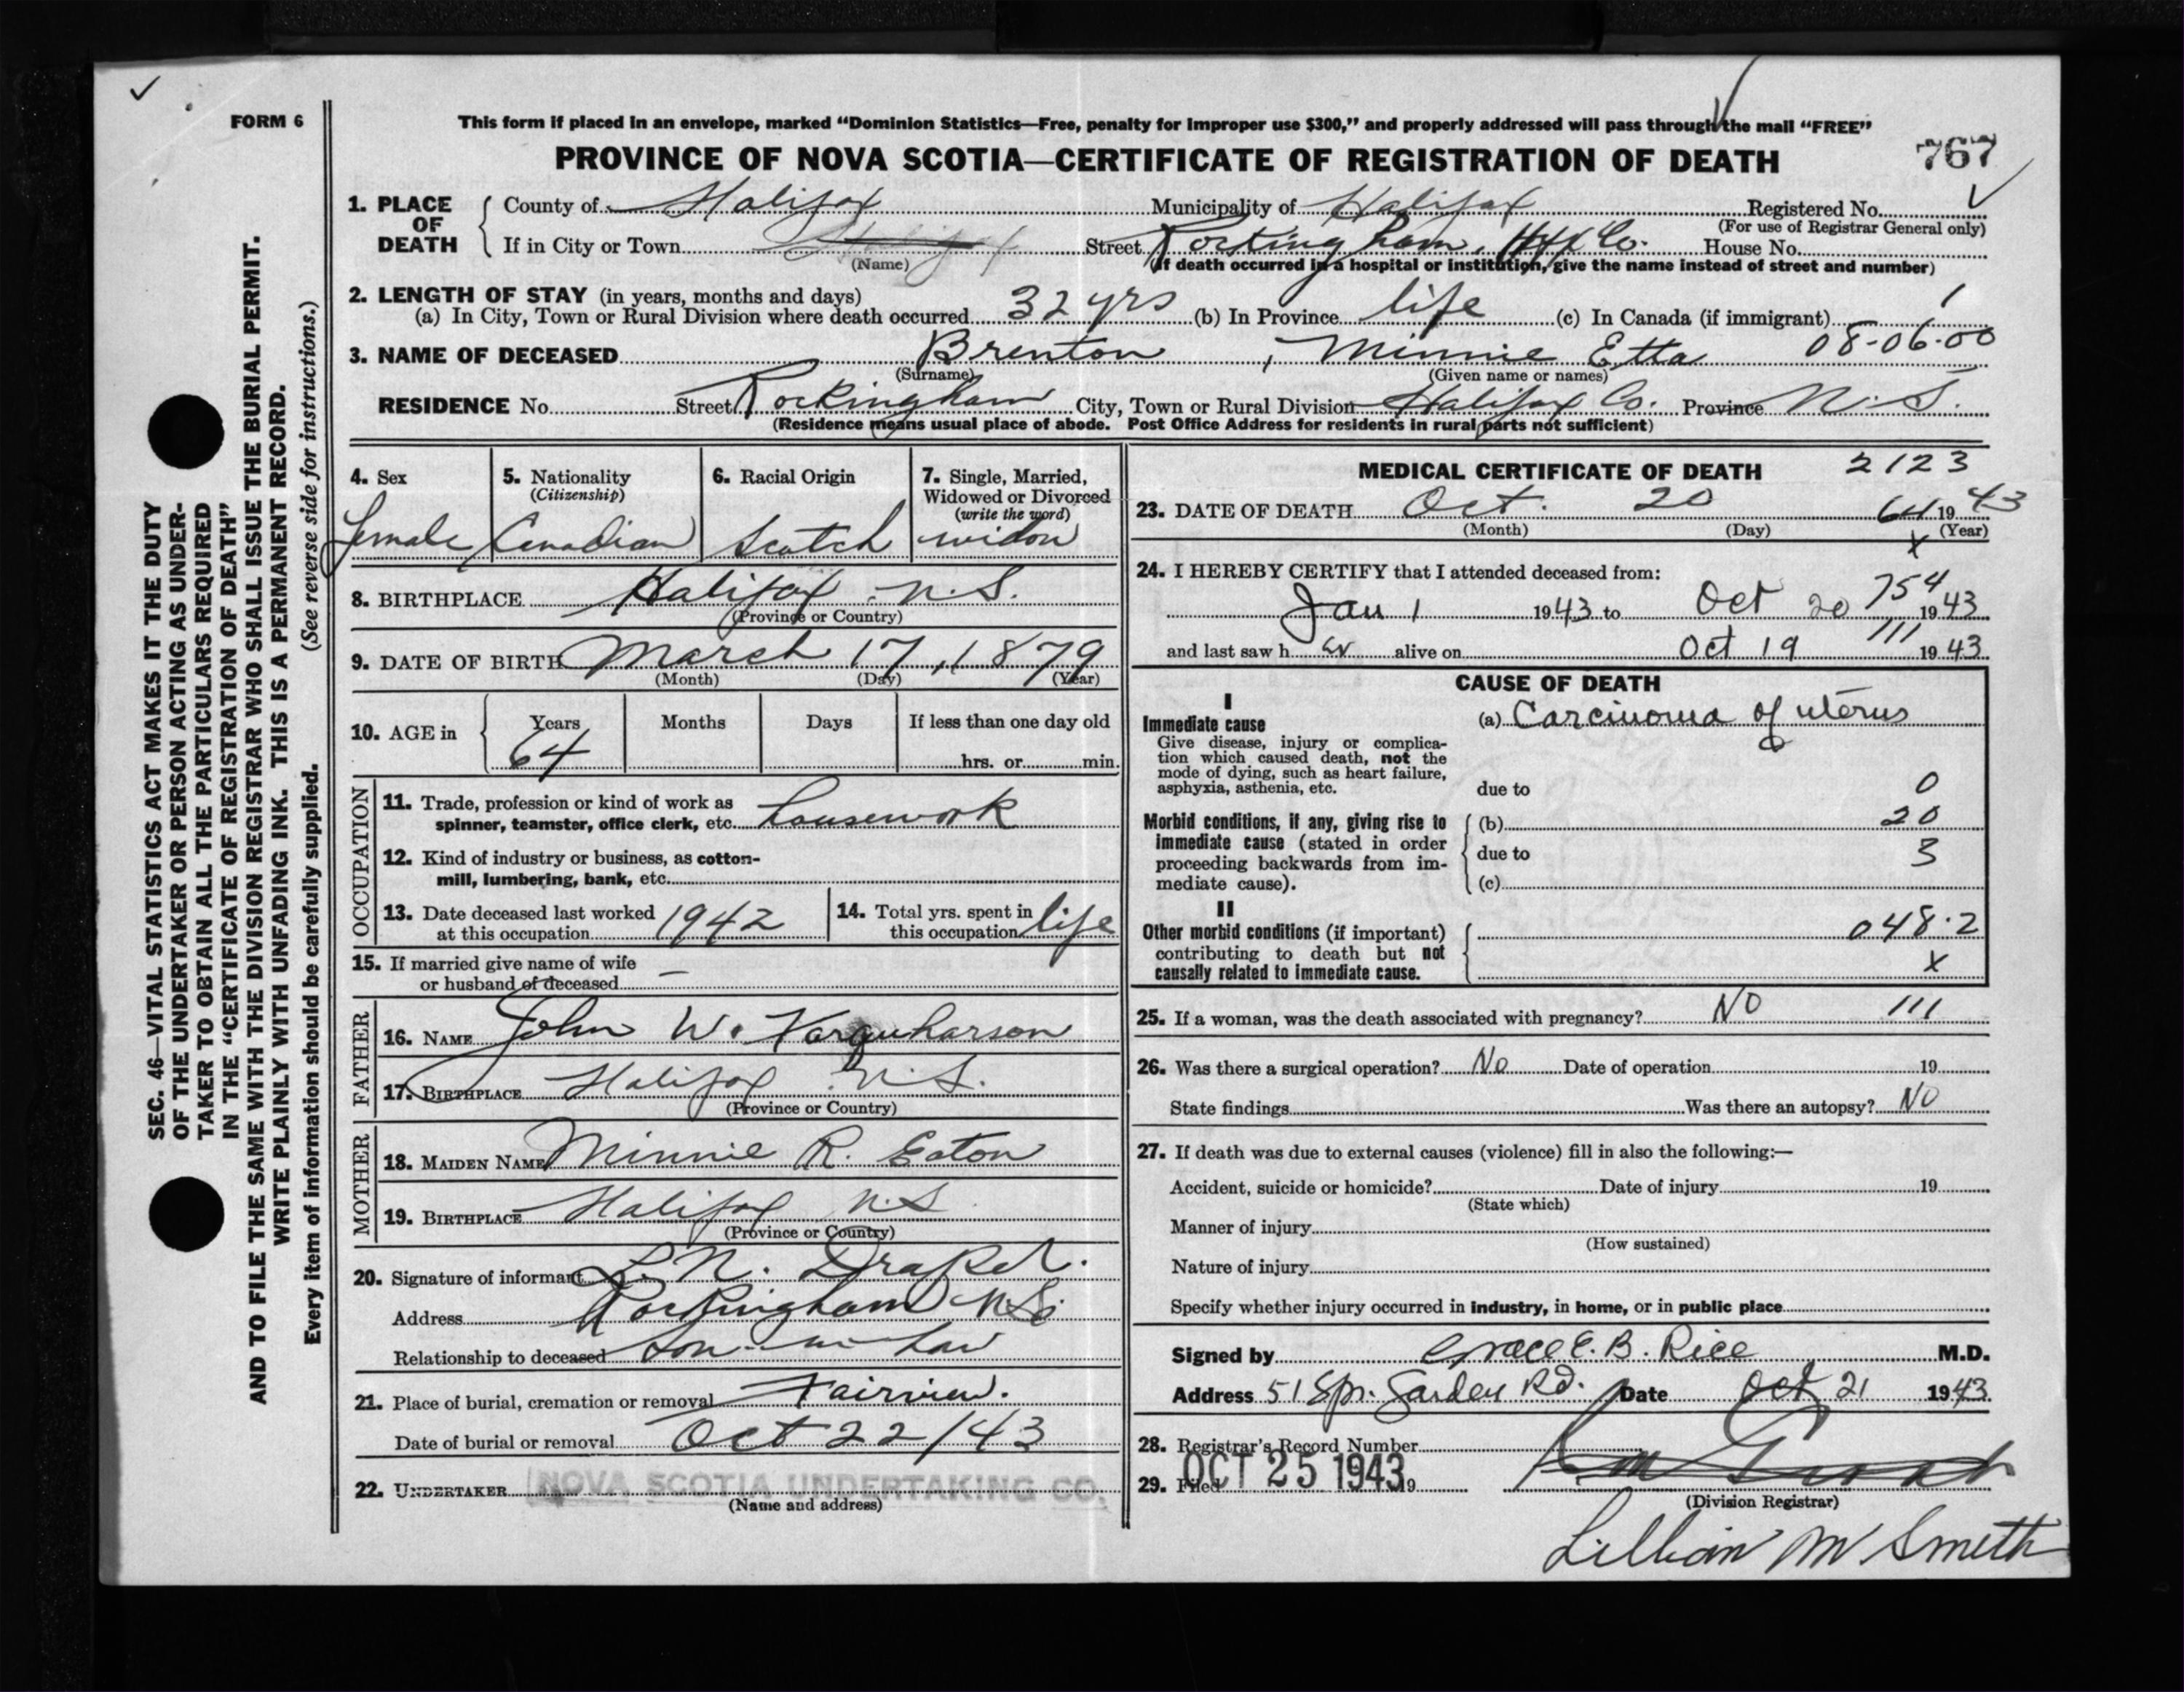 FORM 6
This form if placed in an envelope, marked “Dominion Statistics—Free, penalty for improper use $300,” and properly addressed will pass through the mail “FREE”
PROVINCE OF NOVA SCOTIA—CERTIFICATE OF REGISTRATION OF DEATH
767
1. PLACE OF DEATH
County of Halifax Municipality of Halifax Registered No.
(For use of Registrar General only)
If in City or Town Halifax Street Rockingham, Hfx Co. House No.
(Name) (If death occurred in a hospital or institution, give the name instead of street and number)
2. LENGTH OF STAY (in years, months and days)
(a) In City, Town or Rural Division where death occurred 32 yrs (b) In Province life (c) In Canada (if immigrant) 1
3. NAME OF DECEASED Brenton, Minnie Etta 08-06-00
(Surname) (Given name or names)
RESIDENCE No. Street Rockingham City, Town or Rural Division Halifax Co. Province N.S.
(Residence means usual place of abode. Post Office Address for residents in rural parts not sufficient)
4. Sex
female
5. Nationality
(Citizenship)
Canadian
6. Racial Origin
Scotch
7. Single, Married,
Widowed or Divorced
(write the word)
widow
8. BIRTHPLACE Halifax, N.S.
(Province or Country)
9. DATE OF BIRTH March 17, 1879
(Month) (Day) (Year)
10. AGE in
Years Months Days If less than one day old
64 hrs. or min.
OCCUPATION
11. Trade, profession or kind of work as
spinner, teamster, office clerk, etc. housework
12. Kind of industry or business, as cotton-
mill, lumbering, bank, etc.
13. Date deceased last worked
at this occupation 1942
14. Total yrs. spent in
this occupation life
15. If married give name of wife
or husband of deceased —
FATHER
16. NAME John W. Farquharson
17. BIRTHPLACE Halifax N.S.
(Province or Country)
MOTHER
18. MAIDEN NAME Minnie R. Eaton
19. BIRTHPLACE Halifax N.S
(Province or Country)
20. Signature of informant L. N. Draper.
Address Rockingham N.S.
Relationship to deceased Son-in-law
21. Place of burial, cremation or removal Fairview.
Date of burial or removal Oct 22/43
22. UNDERTAKER NOVA SCOTIA UNDERTAKING CO.
(Name and address)
MEDICAL CERTIFICATE OF DEATH 2123
23. DATE OF DEATH Oct. 20 64 1943
(Month) (Day) (Year)
x
24. I HEREBY CERTIFY that I attended deceased from:
754
Jan 1 1943 to Oct 20 1943
111
and last saw her alive on Oct 19 1943
CAUSE OF DEATH
I
Immediate cause
(a) Carcinoma of uterus
Give disease, injury or complica-
tion which caused death, not the
mode of dying, such as heart failure,
asphyxia, asthenia, etc.
due to 0
Morbid conditions, if any, giving rise to
immediate cause (stated in order
proceeding backwards from im-
mediate cause).
(b) 20
due to 3
(c)
II
Other morbid conditions (if important)
contributing to death but not
causally related to immediate cause.
048.2
x
25. If a woman, was the death associated with pregnancy? NO 111
26. Was there a surgical operation? No Date of operation 19
State findings Was there an autopsy? NO
27. If death was due to external causes (violence) fill in also the following:—
Accident, suicide or homicide? Date of injury 19
(State which)
Manner of injury
(How sustained)
Nature of injury
Specify whether injury occurred in industry, in home, or in public place
Signed by Grace E. B. Rice M.D.
Address 51 Spr. Garden Rd. Date Oct 21 1943
28. Registrar's Record Number
29. Filed OCT 25 1943 19
(Division Registrar)
Lillian M Smith
SEC. 46—VITAL STATISTICS ACT MAKES IT THE DUTY
OF THE UNDERTAKER OR PERSON ACTING AS UNDER-
TAKER TO OBTAIN ALL THE PARTICULARS REQUIRED
IN THE “CERTIFICATE OF REGISTRATION OF DEATH”
AND TO FILE THE SAME WITH THE DIVISION REGISTRAR WHO SHALL ISSUE THE BURIAL PERMIT.
WRITE PLAINLY WITH UNFADING INK. THIS IS A PERMANENT RECORD.
Every item of information should be carefully supplied. (See reverse side for instructions.)